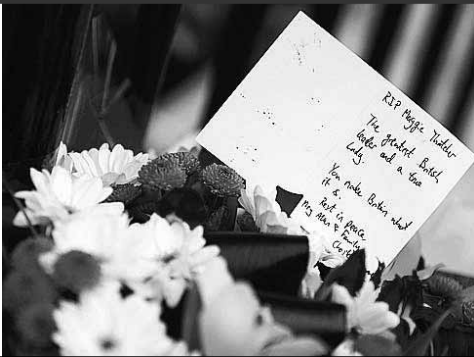 RIP Maggie Thatcher
The greatest British
leader and a true
Lady.
You make Britain what
it is.
Rest in peace
Alan & Family